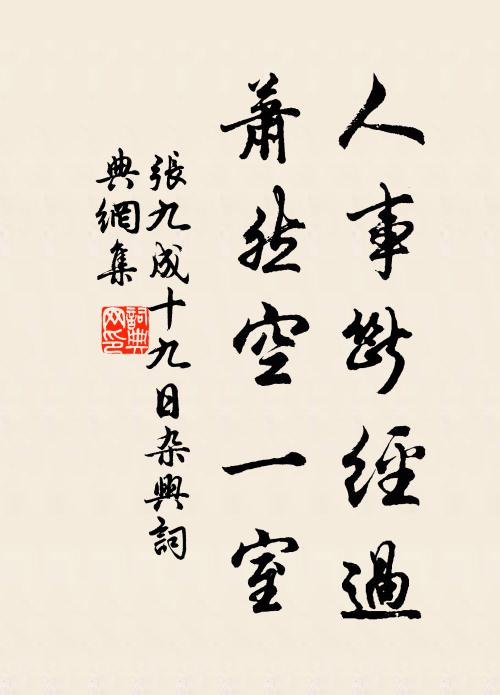 人事斷經過
蕭然空一室
張九成十九日杂興詞
典網集
詞典网印